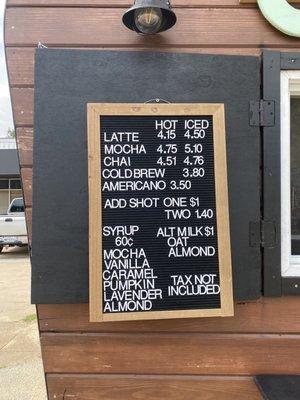 HOT ICED
LATTE 4.15 4.50
MOCHA 4.75 5.10
CHAI 4.51 4.76
COLD BREW 3.80
AMERICANO 3.50
ADD SHOT ONE $1
TWO 1.40
SYRUP ALT MILK $1
60¢ OAT
MOCHA ALMOND
VANILLA
CARAMEL
PUMPKIN TAX NOT
LAVENDER INCLUDED
ALMOND